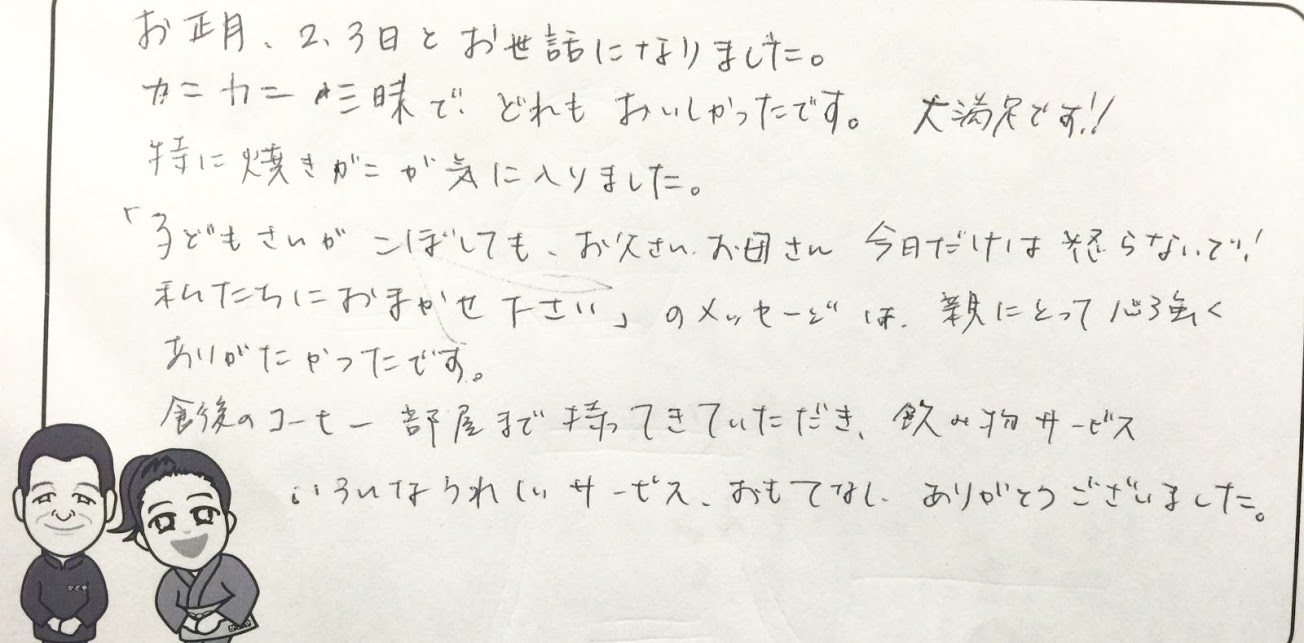 お正月、2、3日とお世話になりました。
カニカニ三昧で、どれもおいしかったです。 大満足です!!
特に焼きがにが気に入りました。
「子どもさんがこぼしても、お父さん、お母さん 今日だけは怒らないで!
私たちにおまかせ下さい」のメッセージは、親にとって心強く
ありがたかったです。
食後のコーヒー部屋まで持ってきていただき、飲み物サービス
いろいろなうれしいサービス、おもてなし、ありがとうございました。
かどや